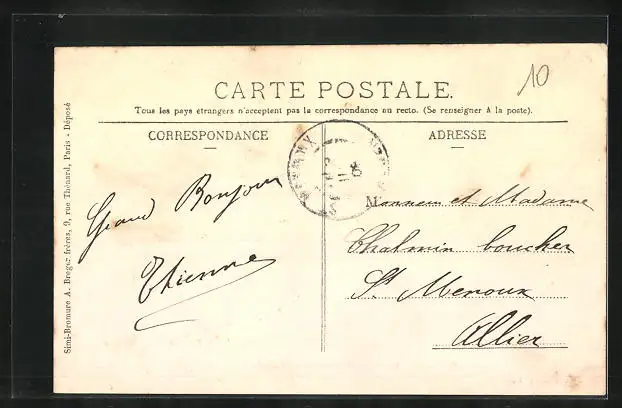 10
CARTE POSTALE.
Tous les pays étrangers n'acceptent pas la correspondance au recto. (Se renseigner à la poste).
CORRESPONDANCE
ADRESSE
Grand Bonjour
Etienne
Monsieur et Madame
Chalmin boucher
St Menoux
Allier
Simi-Bromure A. Breger frères, 9, rue Thénard, Paris - Déposé